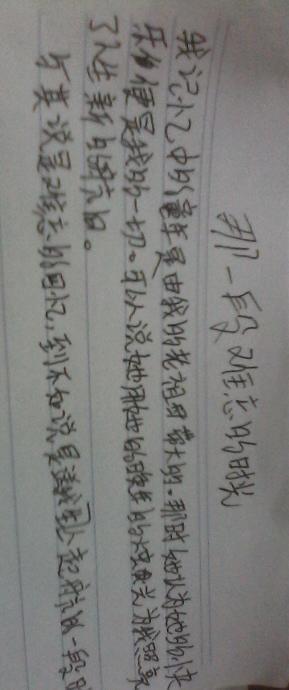 那一段难忘的时光
我记忆中的童年是由我的老祖母带大的。那时她认为她的快
乐便是我的一切。可以说她用她的的烛光为我照亮
了人生新的航向。
与其说是难忘的回忆,到不如说是人起航的一段时